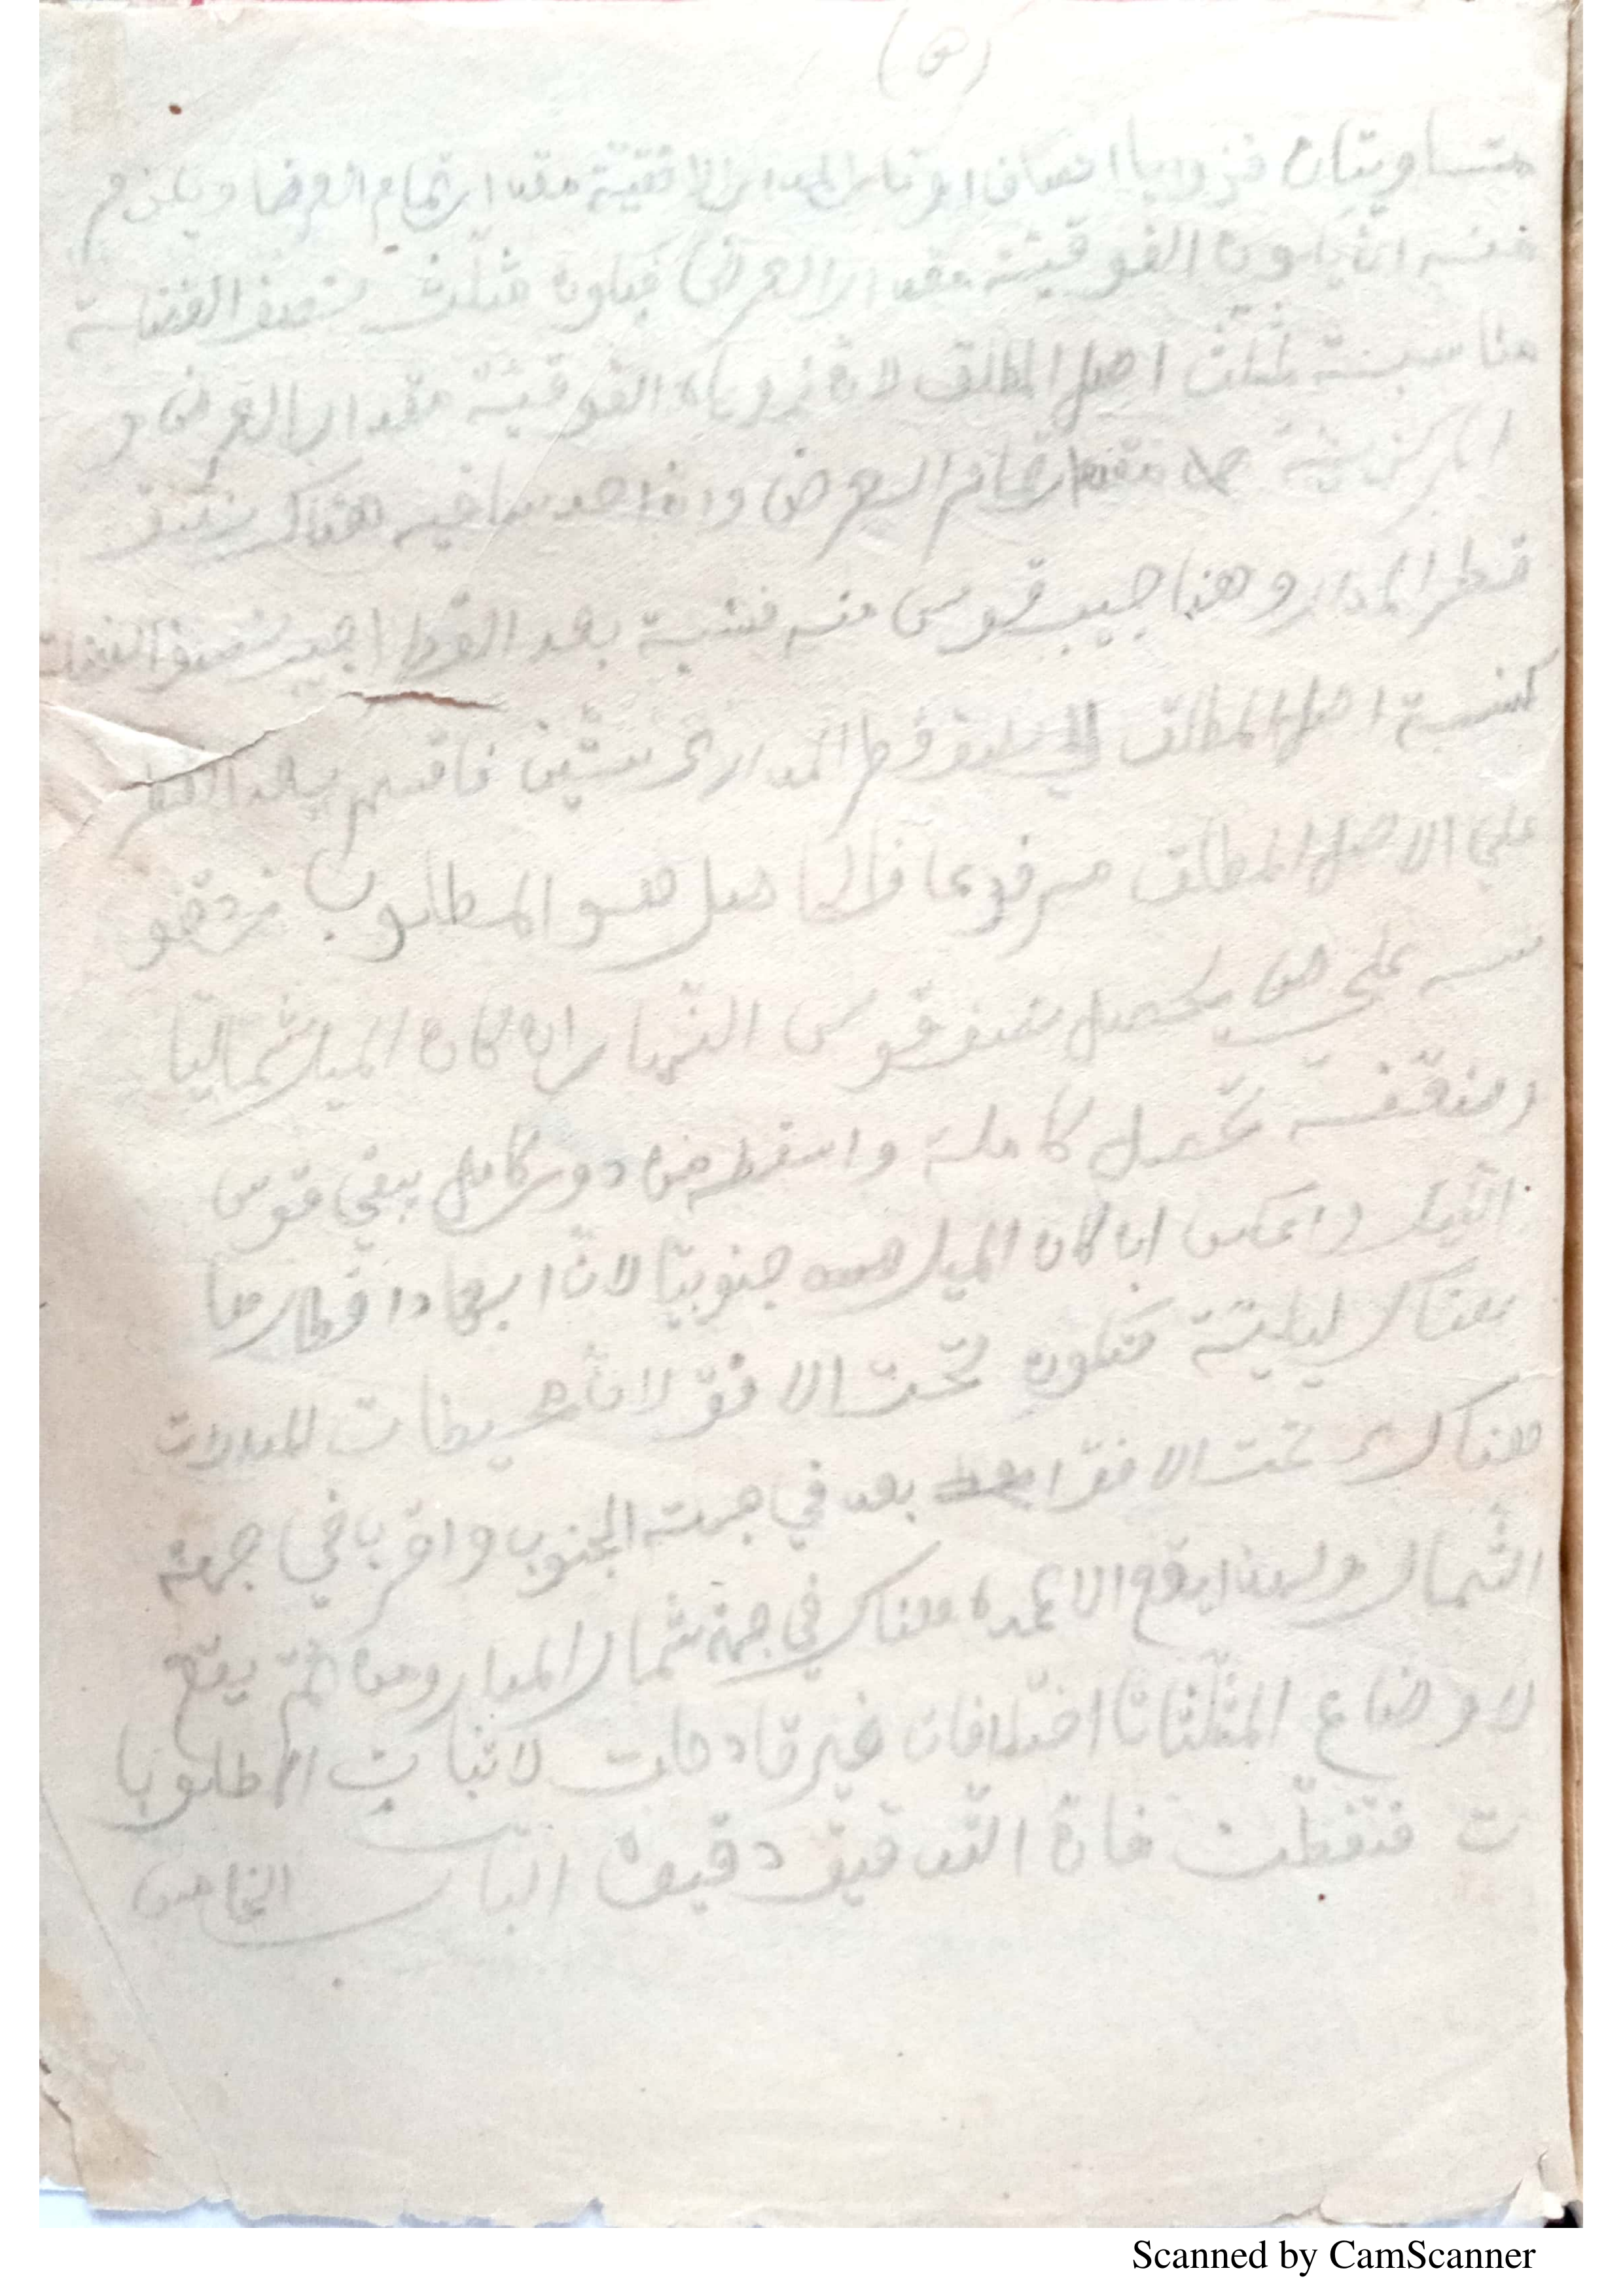 متساويتان فزوايا انصاف اوتار المدار الافقيّة مقدار تمام العرض ويلزم
منه ان يكون الفوقيّة مقدار العرض فيكون مثلث نصف الفضلة
مناسبة لمثلث اصل المطلق لان زواياه الفوقيّة مقدار العرض و
المركزيّة مقدار تمام العرض وان احد ساقيه هناك نصف
قطر المدار وهنا جيب قوس منه فنسبة بعد القطر الجيب نصف الفضلة
كنسبة اصل المطلق الى نصف قطر المدار ستّين فاقسم بعد القطر
على الاصل المطلق مرفوعا فالحاصل هو المطلوب
على ص يحصل نصف قوس النهار ان كان الميل شماليّا
وضعّفه تحصل كاملة واسقطه من دور كامل يبقى قوس
الليل واعكس ان كان الميل جنوبيّا لان ابعاد اقطارها
هناك ليليّة فتكون تحت الافق لان محيطات المدارات
هناك تحت الافق بعد في جهة الجنوب واقرب في جهة
الشمال ولهذا يقع الاعمدة هناك في جهة شمال المدار ومن ثم يقع
لاوضاع المثلثات اختلافات غير قادحات لاثبات المطلوبا
ت فتفطّن فان التدقيق دقيق الباب الخامس
Scanned by CamScanner